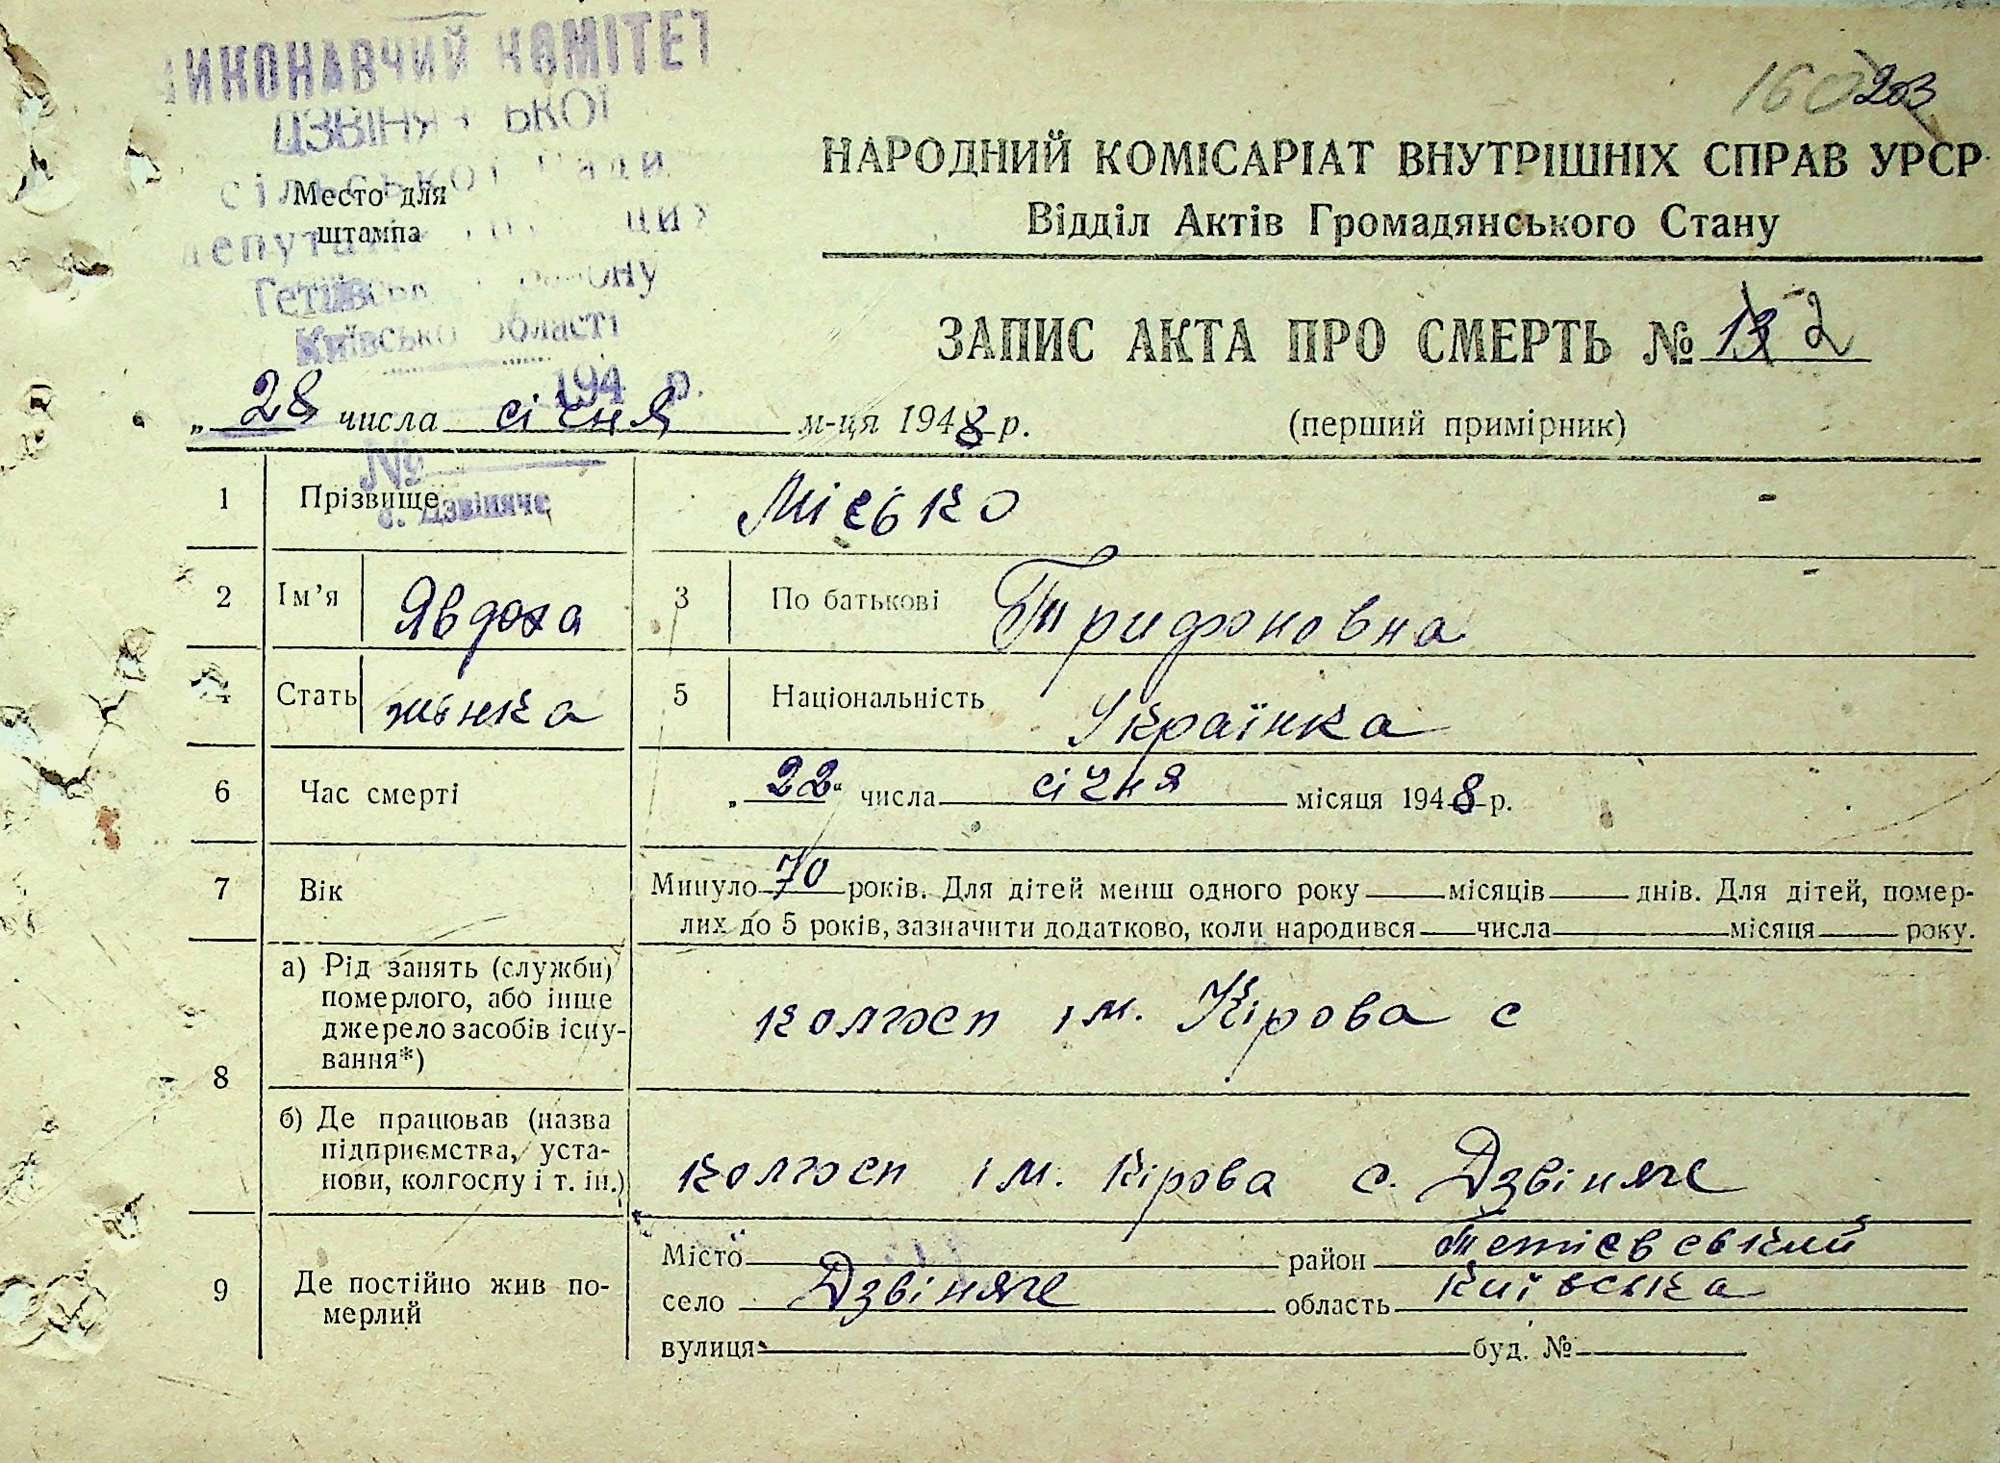 ВИКОНАВЧИЙ КОМІТЕТ
ДЗВІНЯЧСЬКОЇ
сільської Ради
депутатів трудящих
Тетіївського району
Київської області
194 р.
№
с. Дзвіняче
Место для
штампа
160 203
НАРОДНИЙ КОМІСАРІАТ ВНУТРІШНІХ СПРАВ УРСР
Відділ Актів Громадянського Стану
ЗАПИС АКТА ПРО СМЕРТЬ № 2
„ 28 числа січня м-ця 1948 р. (перший примірник)
1 Прізвище Місько
2 Ім’я Явдоха 3 По батькові Трифоновна
4 Стать жінка 5 Національність Українка
6 Час смерті „ 22 “ числа січня місяця 1948 р.
7 Вік Минуло 70 років. Для дітей менш одного року місяців днів. Для дітей, помер-
лих до 5 років, зазначити додатково, коли народився числа місяця року.
8 а) Рід занять (служби)
померлого, або інше
джерело засобів існу-
вання*)
колгосп ім. Кірова с
б) Де працював (назва
підприємства, уста-
нови, колгоспу і т. ін.)
колгосп ім. Кірова с. Дзвіняче
9 Де постійно жив по-
мерлий
Місто район Тетієвський
село Дзвіняче область Київська
вулиця буд. №